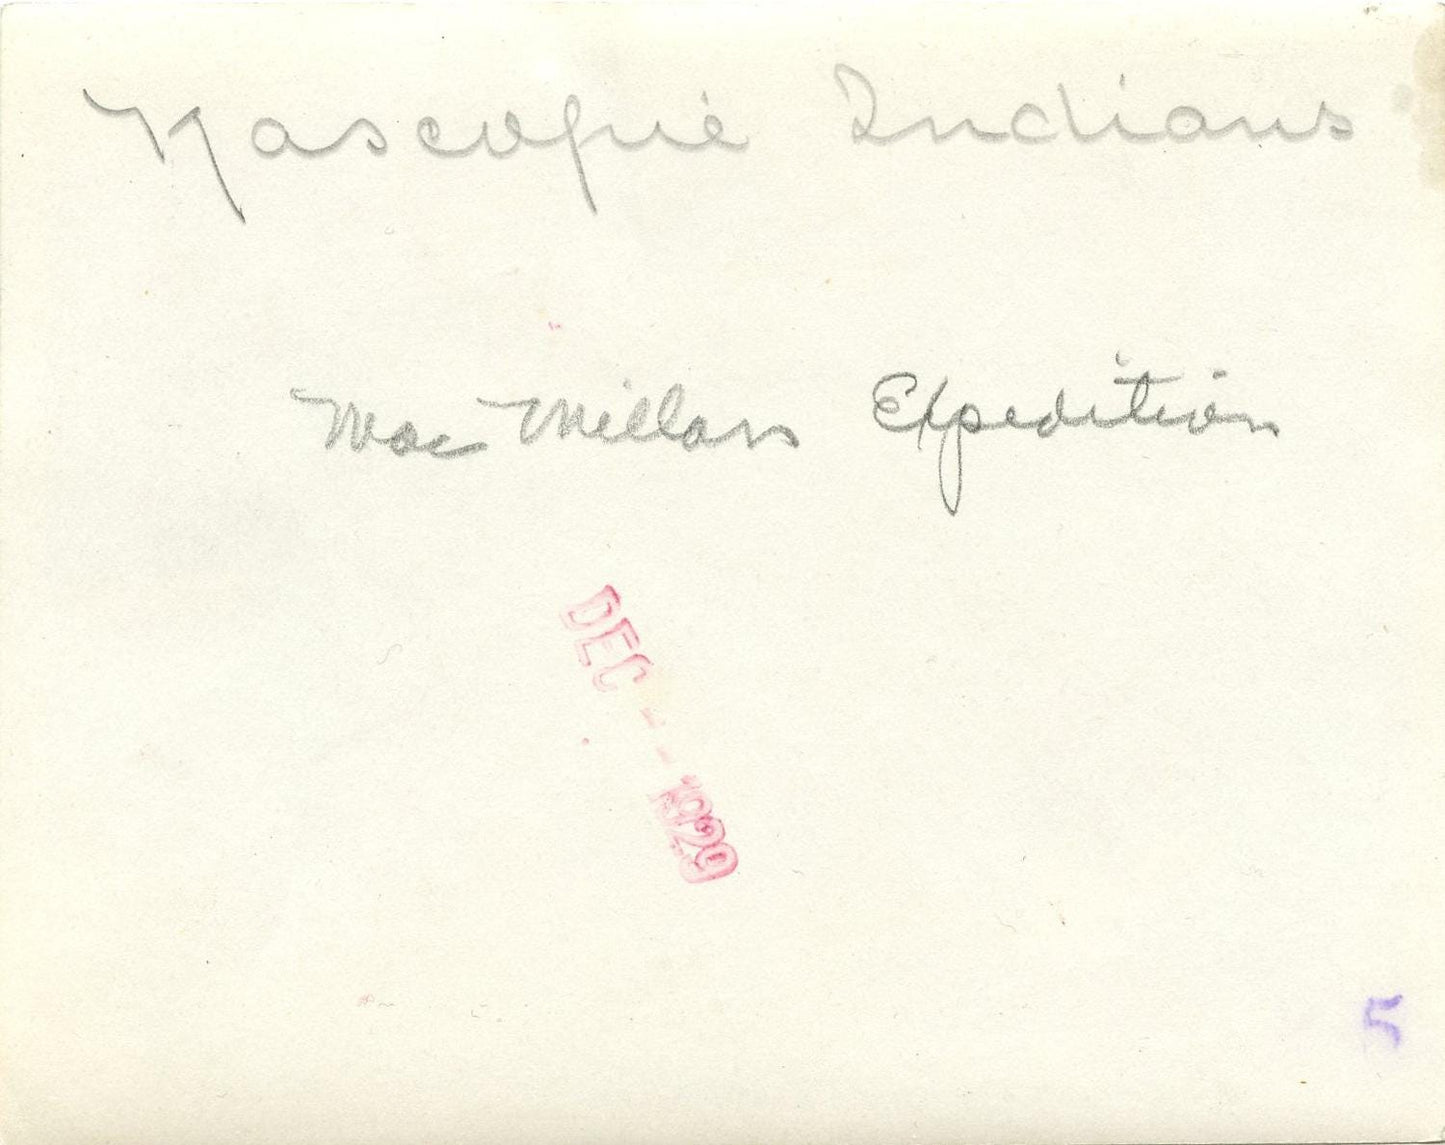 Nascopie Indians
MacMillans Expedition
DEC -- 1929
5